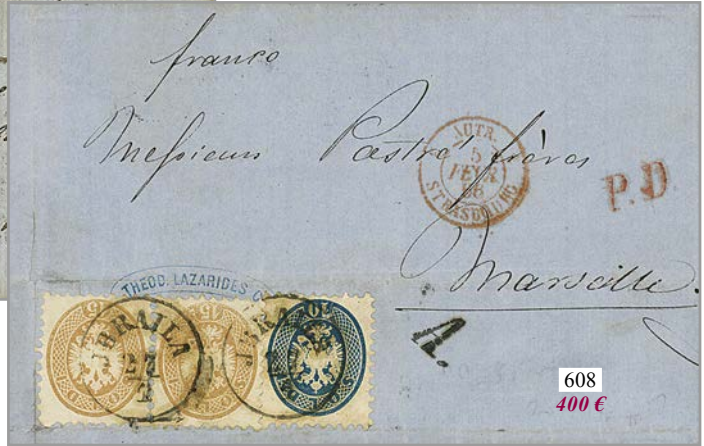 franco
Messieurs Pastré frères
AUTR.
5
FEVR
66
STRASBOURG
P.D.
Marseille.
THEOD. LAZARIDES
15 15 10
JBRAILA JBRA
608
400 €